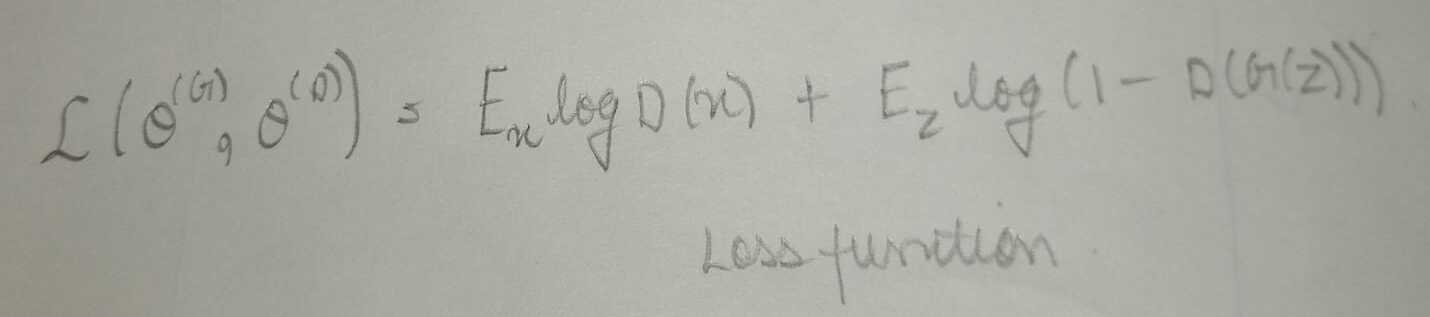 L(θ^(G), θ^(D)) = E_x log D(x) + E_z log(1 - D(G(z))).
Loss function.